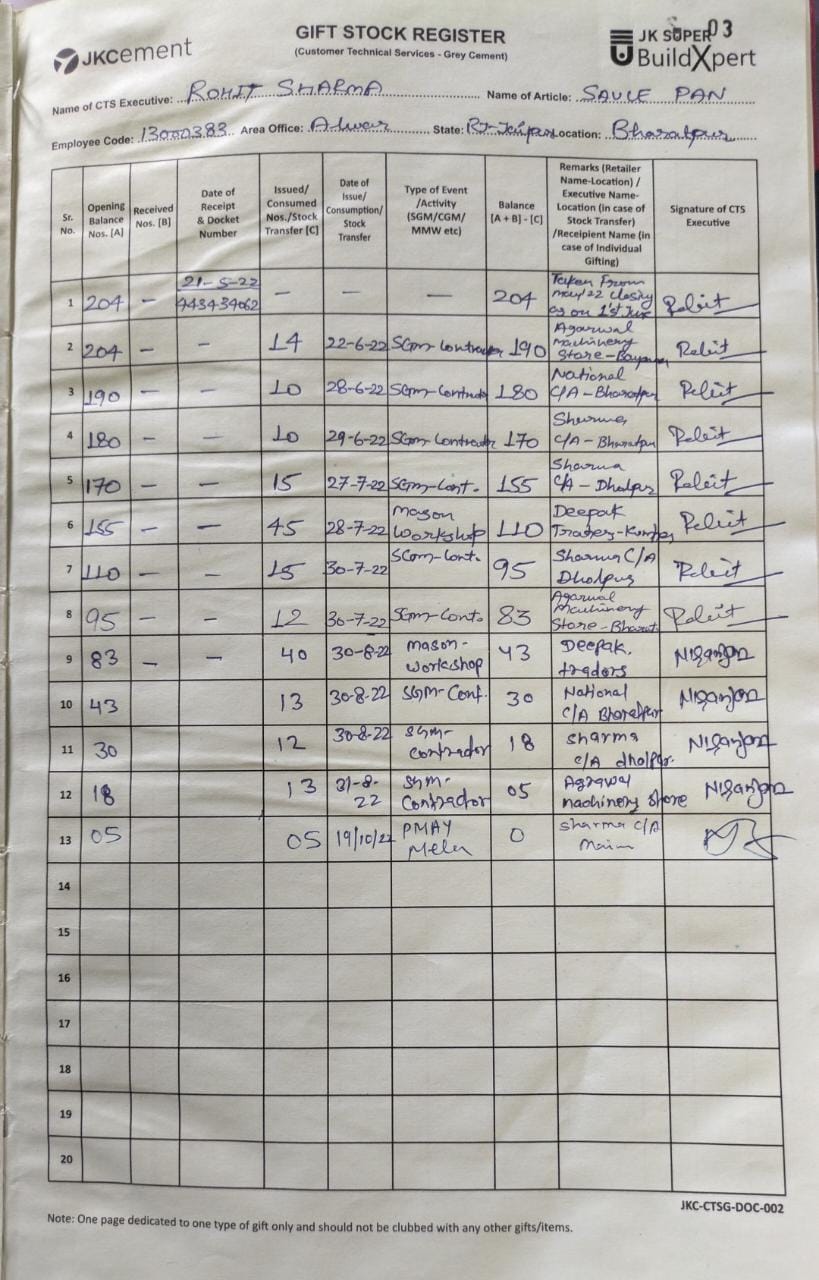 JKCement
GIFT STOCK REGISTER
(Customer Technical Services - Grey Cement)
03
JK SUPER
BuildXpert
Name of CTS Executive: ROHIT SHARMA Name of Article: SAUCE PAN
Employee Code: 13000383 Area Office: Alwar State: RJ-Jaipur Location: Bharatpur
Sr. No. Opening Balance Nos. [A] Received Nos. [B] Date of Receipt & Docket Number Issued/ Consumed Nos./Stock Transfer [C] Date of Issue/ Consumption/ Stock Transfer Type of Event /Activity (SGM/CGM/ MMW etc) Balance [A + B] - [C] Remarks (Retailer Name-Location) / Executive Name- Location (in case of Stock Transfer) /Receipient Name (in case of Individual Gifting) Signature of CTS Executive
1 204 — 21-5-22 443434062 — — — 204 Taken From may'22 closing as on 1'st June Rohit
2 204 — — 14 22-6-22 SGm-Contractor 190 Agarwal Machinery Store- Rohit
3 190 — — 10 28-6-22 SGm-Contractor 180 National C/A-Bharatpur Rohit
4 180 — — 10 29-6-22 SGm-Contractor 170 Sharma C/A-Bharatpur Rohit
5 170 — — 15 27-7-22 SGm-Cont. 155 Sharma C/A-Dholpur Rohit
6 155 — — 45 28-7-22 Mason Workshop 110 Deepak Traders- Rohit
7 110 — — 15 30-7-22 SGm-Cont. 95 Sharma C/A Dholpur Rohit
8 95 — — 12 30-7-22 SGm-Cont. 83 Agarwal Machinery Store-Bharat Rohit
9 83 — — 40 30-8-22 mason-workshop 43 Deepak. tradors Niranjan
10 43 13 30-8-22 SGM-Conf. 30 National C/A Bharatpur Niranjan
11 30 12 30-8-22 sgm-contrador 18 sharma c/A dholpur. Niranjan
12 18 13 31-8-22 sgm-Contrador 05 Agrawal machinery store Niranjan
13 05 05 19/10/22 PMAY Mela 0 sharma c/A
14
15
16
17
18
19
20
JKC-CTSG-DOC-002
Note: One page dedicated to one type of gift only and should not be clubbed with any other gifts/items.